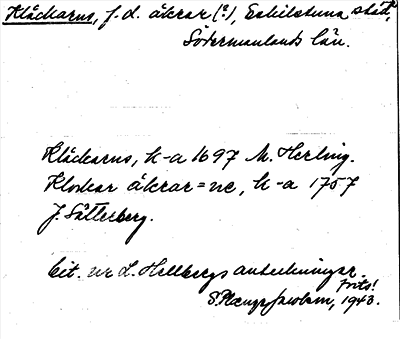 Klåckarns, f. d. åkrar (?), Eskilstuna stad,
Södermanlands län.
Klåckarns, k-a 1697 M. Herling.
Klockar åkrar = ne, k-a 1757
J. Sätterberg.
Cit. ur L. Hellbergs anteckningar.
Forts!
1943.